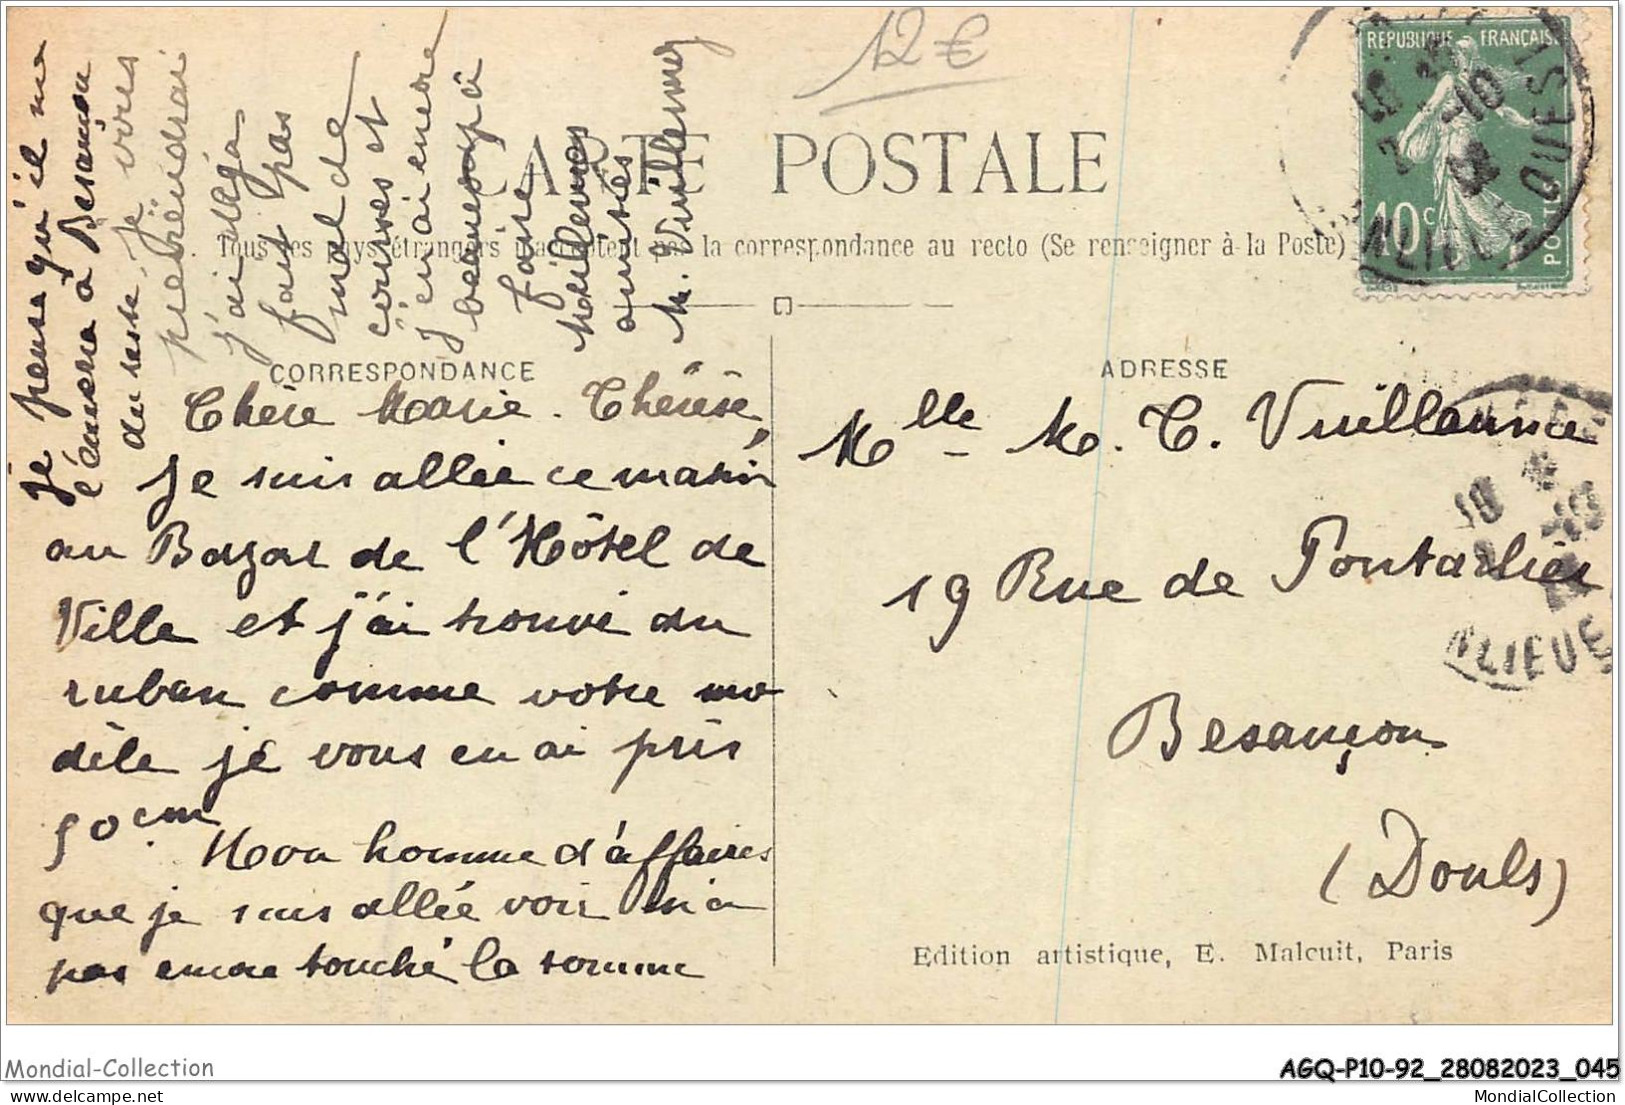 12 €
REPUBLIQUE FRANÇAISE
10c
POSTES
CARTE POSTALE
Tous les pays étrangers n'acceptent pas la correspondance au recto (Se renseigner à la Poste)
CORRESPONDANCE
Chère Marie-Thérèse,
Je suis allée ce matin
au Bazar de l'Hôtel de
Ville et j'ai trouvé du
ruban comme votre mo
dèle je vous en ai pris
50 cm.
Mon homme d'affaires
que je suis allée voir n'a
pas encore touché la somme
je pense qu'il me
l'enverra à Besançon
du reste. Je vous
préviendrai
j'ai déjà
fait pas
mal de
courses et
j'en ai encore
beaucoup à
faire
Meilleures
amitiés
M. Vuillemey
ADRESSE
Mlle M. T. Vuillaume
19 Rue de Pontarlier
Besançon
(Doubs)
NLIEUE OUEST
NLIEUE
Edition artistique, E. Malcuit, Paris
Mondial-Collection
AGQ-P10-92_28082023_045
MondialCollection
MondialCollection